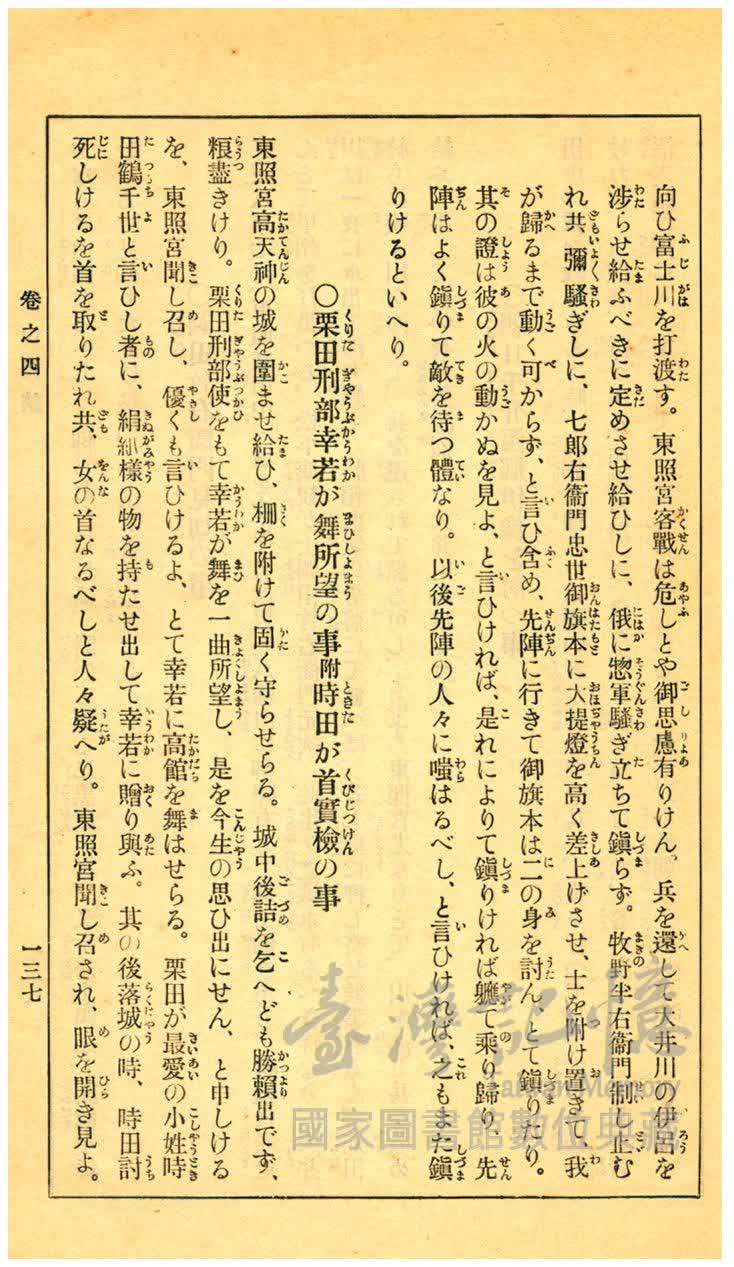 向ひ富士川を打渡す。東照宮客戰は危しとや御思慮有りけん、兵を還して大井川の伊呂を
渉らせ給ふべきに定めさせ給ひしに、俄に惣軍騷ぎ立ちて鎭らず。牧野半右衞門制し止む
れ共、彌騷ぎしに、七郎右衞門忠世御旗本に大提燈を高く差上げさせ、士を附け置きて、我
が歸るまで動く可からず、と言ひ含め、先陣に行きて御旗本は二の身を討ん、とて鎭りたり。
其の證は彼の火の動かぬを見よ、と言ひければ、是れによりて鎭りければ軈て乘り歸り、先
陣はよく鎭りて敵を待つ體なり。以後先陣の人々に嗤はるべし、と言ひければ、之もまた鎭
りけるといへり。
〇栗田刑部幸若が舞所望の事附時田が首實檢の事
東照宮高天神の城を圍ませ給ひ、柵を附けて固く守らせらる。城中後詰を乞へども勝賴出でず、
粮盡きけり。栗田刑部使をもて幸若が舞を一曲所望し、是を今生の思ひ出にせん、と申しける
を、東照宮聞し召し、優くも言ひけるよ、とて幸若に高館を舞はせらる。栗田が最愛の小姓時
田鶴千世と言ひし者に、絹紙樣の物を持たせ出して幸若に贈り與ふ。其の後落城の時、時田討
死しけるを首を取りたれ共、女の首なるべしと人々疑へり。東照宮聞し召され、眼を開き見よ。
卷之四
一三七
臺灣記憶
Taiwan Memory
國家圖書館數位典藏